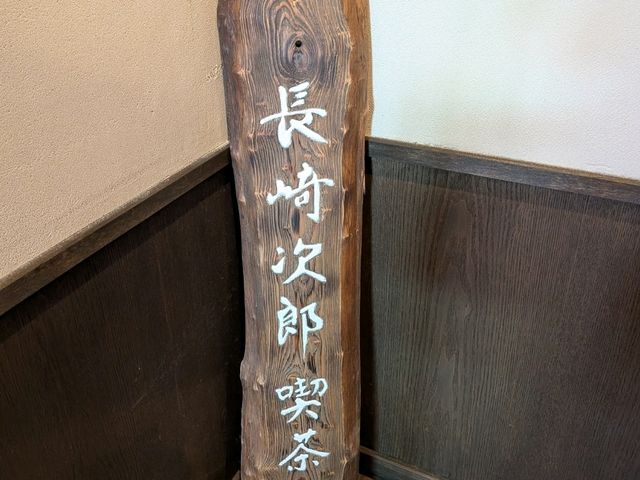 長崎次郎喫茶